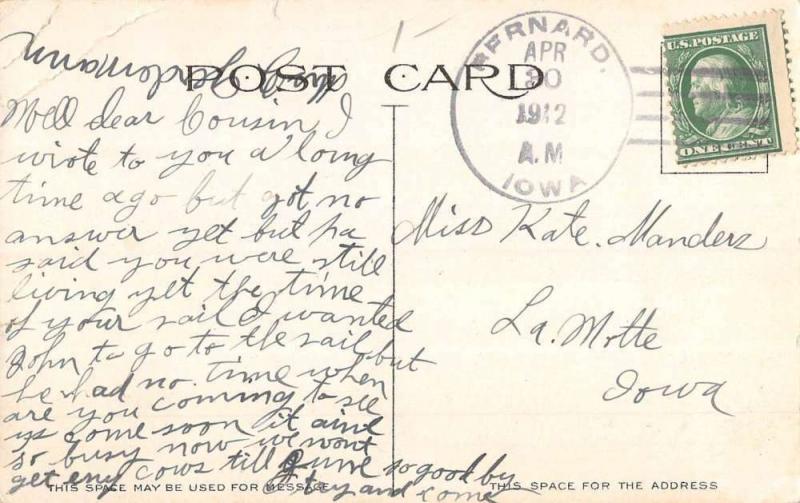 POST CARD
BERNARD.
APR
20
1912
A.M
IOWA
U.S. POSTAGE
ONE CENT
Well dear Cousin I
wrote to you a long
time ago but got no
answer yet but pa
said you were still
living yet the time
of your sail I wanted
John to go to the sail but
he had no. time when
are you comming to see
us come soon it aint
so busy now we wont
get eny cows till June so good by
try and come
Miss Kate. Manderz
La. Motte
Iowa
THIS SPACE MAY BE USED FOR MESSAGE
THIS SPACE FOR THE ADDRESS